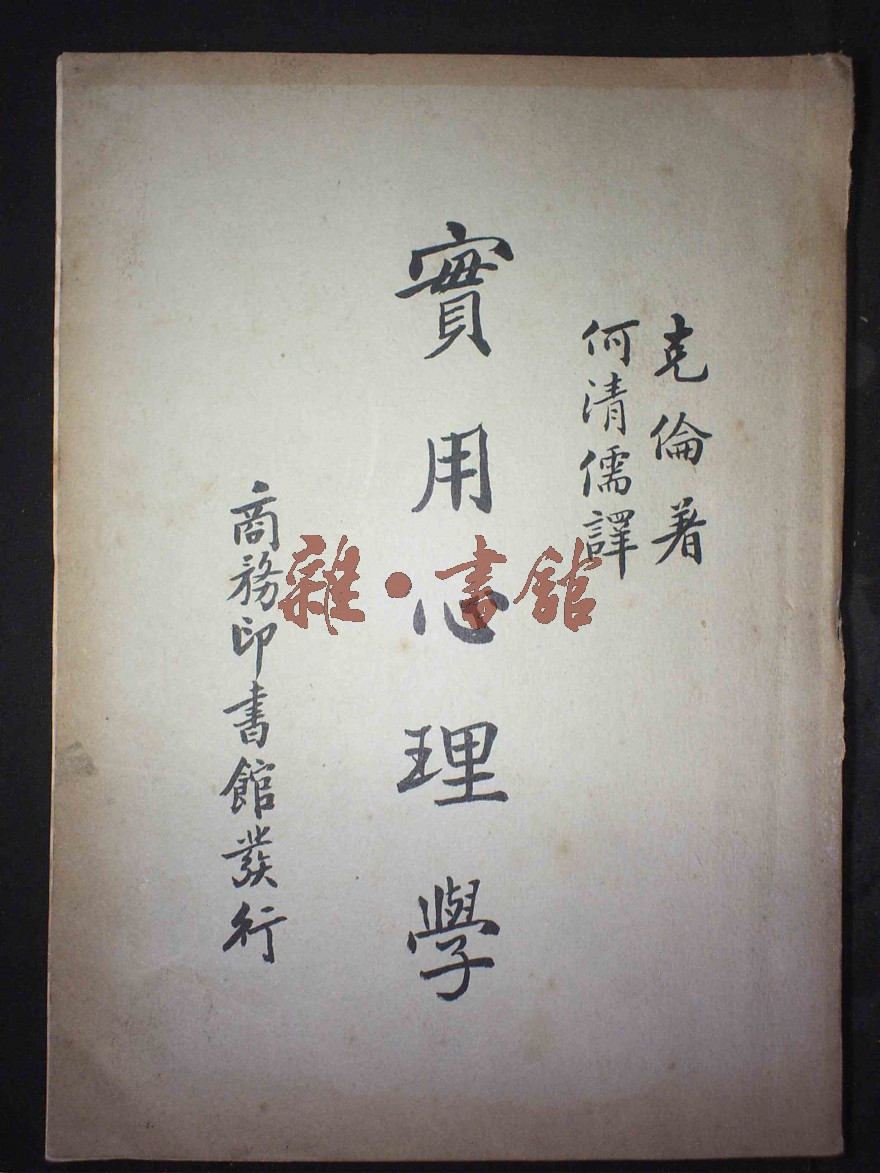 克倫著
何清儒譯
實用心理學
商務印書館發行
雜·書館